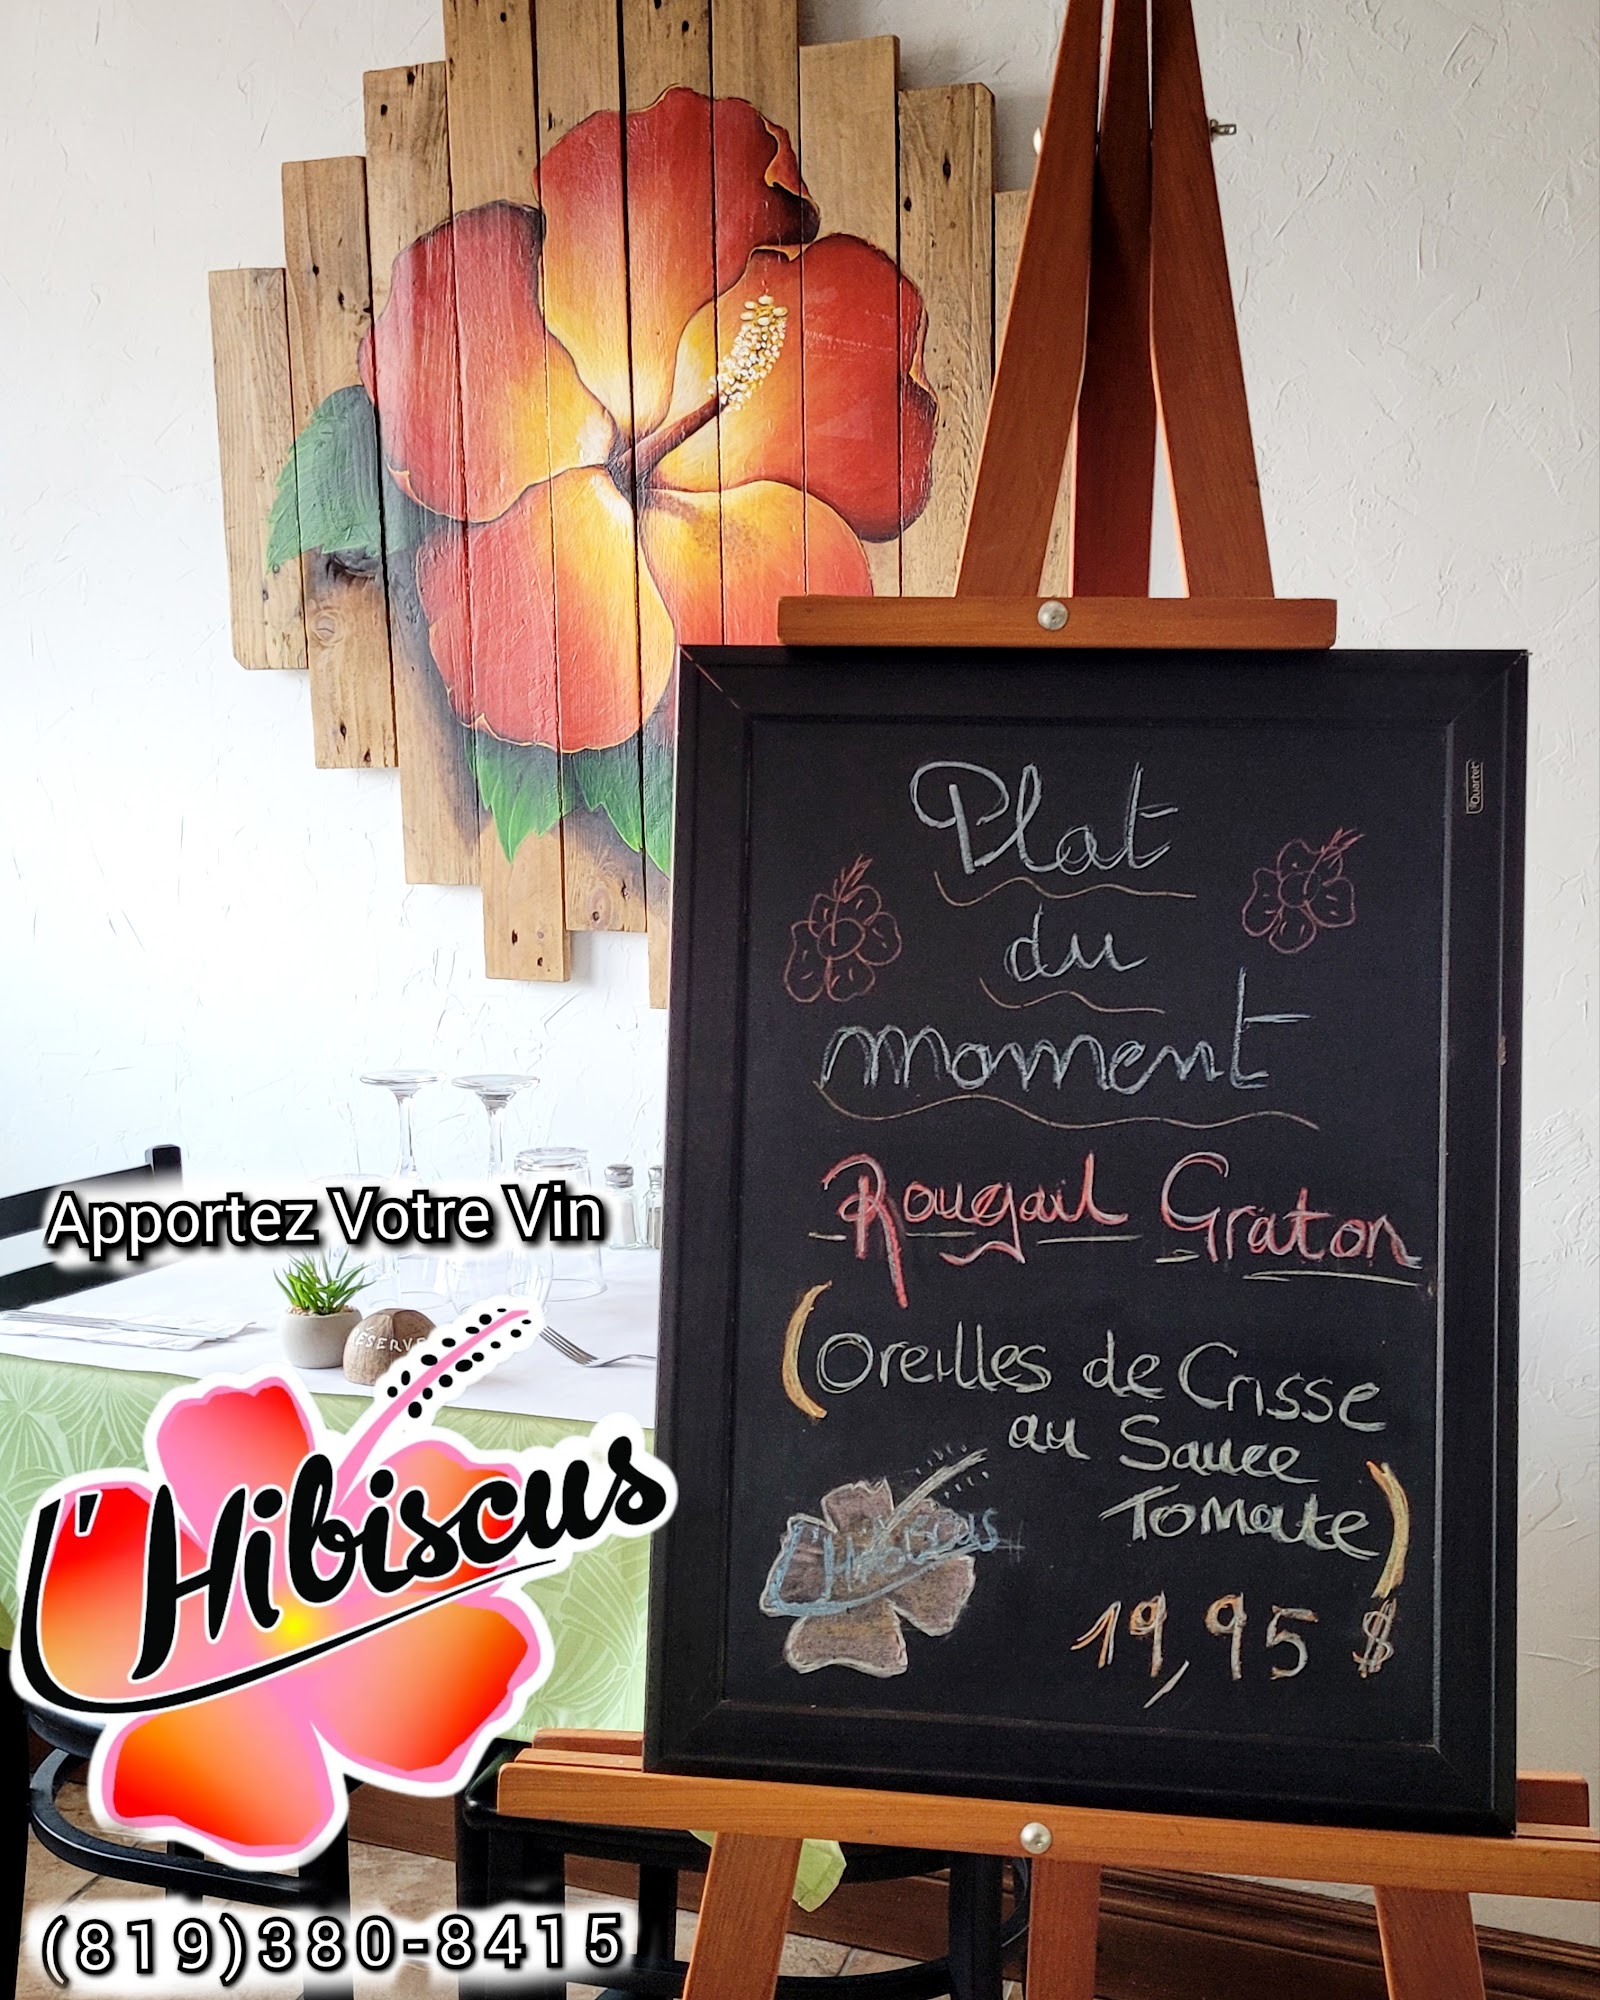 Quartet
Plat
du
moment
Rougail Graton
(Oreilles de Crisse
au Sauce
Tomate)
L'Hibiscus
19,95 $
Apportez Votre Vin
RÉSERVÉ
l'Hibiscus
(819)380-8415